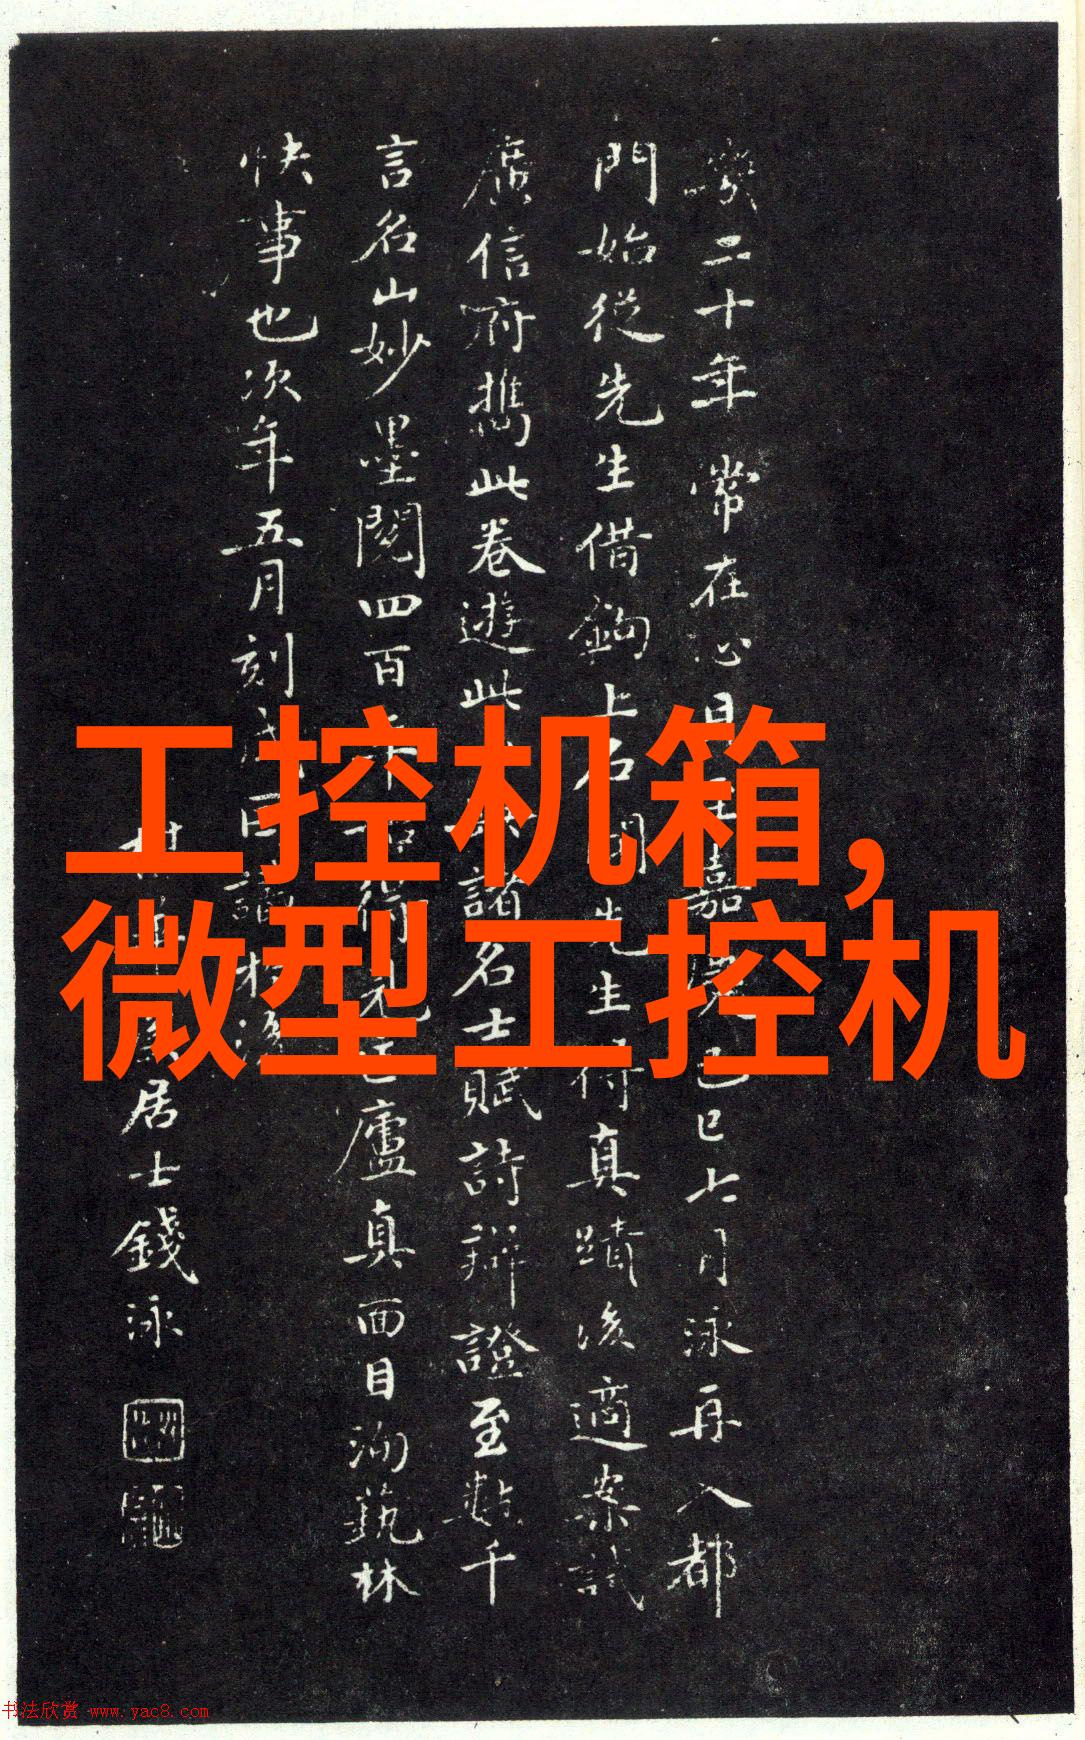 二十年常在心目嘉慶己巳七月泳再入都
門始從先生借鉤上石先生得真蹟後適案試
廣信府攜此卷遊此與諸名士賦詩辯證至數千
言名山妙墨閱四百年得見廬真面目洵藝林
快事也次年五月刻成因識於後
居士錢泳
工控机箱,
微型工控机
书法欣赏 www.yac8.com